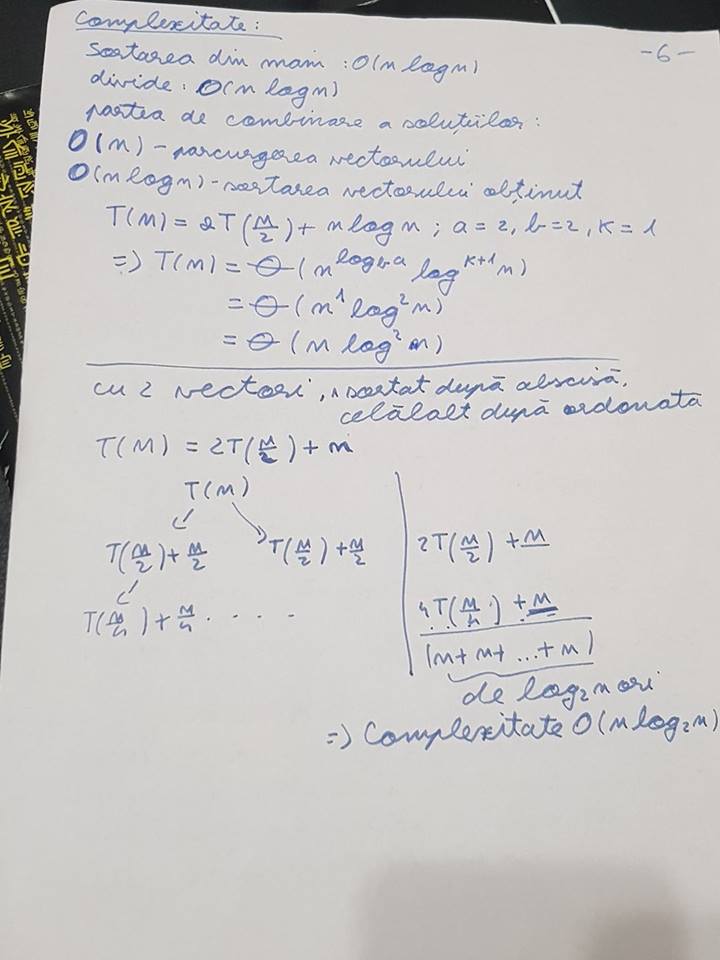 Complexitate:
-6-
Sortarea din main : O(n log n)
divide : O(n log n)
partea de combinare a soluțiilor :
O(n) - parcurgerea vectorului
O(n log n) - sortarea vectorului obținut
T(n) = 2T(n/2) + n log n ; a = 2, b = 2, k = 1
=> T(n) = Θ(n^{log_b a} log^{k+1} n)
= Θ(n^1 log^2 n)
= Θ(n log^2 n)
cu 2 vectori, 1 sortat după abscisă,
celălalt după ordonată
T(n) = 2T(n/2) + n
T(n)
T(n/2) + n/2 T(n/2) + n/2
T(n/4) + n/4 . . . .
2T(n/2) + n
4T(n/4) + n
(n + n + ... + n)
de log_2 n ori
=> Complexitate O(n log_2 n)